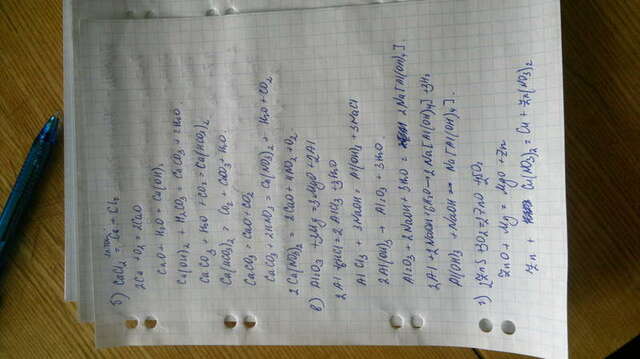 б) CaCl2 = Ca + Cl2
2Ca + O2 = 2CaO
CaO + H2O = Ca(OH)2
Ca(OH)2 + H2CO3 = CaCO3 + 2H2O
CaCO3 + H2O + CO2 = Ca(HCO3)2
Ca(HCO3)2 = CaCO3 + H2O
CaCO3 = CaO + CO2
CaCO3 + 2HNO3 = Ca(NO3)2 + H2O + CO2
2Ca(NO3)2 = 2CaO + 4NO2 + O2
в) Al2O3 + 3Mg = 3MgO + 2Al
2Al + 6HCl = 2AlCl3 + 3H2
AlCl3 + 3NaOH = Al(OH)3 + 3NaCl
2Al(OH)3 = Al2O3 + 3H2O
Al2O3 + 2NaOH + 3H2O = 2Na[Al(OH)4].
2Al + 2NaOH + 6H2O → 2Na[Al(OH)4] + 3H2
Al(OH)3 + NaOH = Na[Al(OH)4].
г) 2ZnS + 3O2 = 2ZnO + 2SO2
ZnO + Mg = MgO + Zn
Zn + Cu(NO3)2 = Cu + Zn(NO3)2